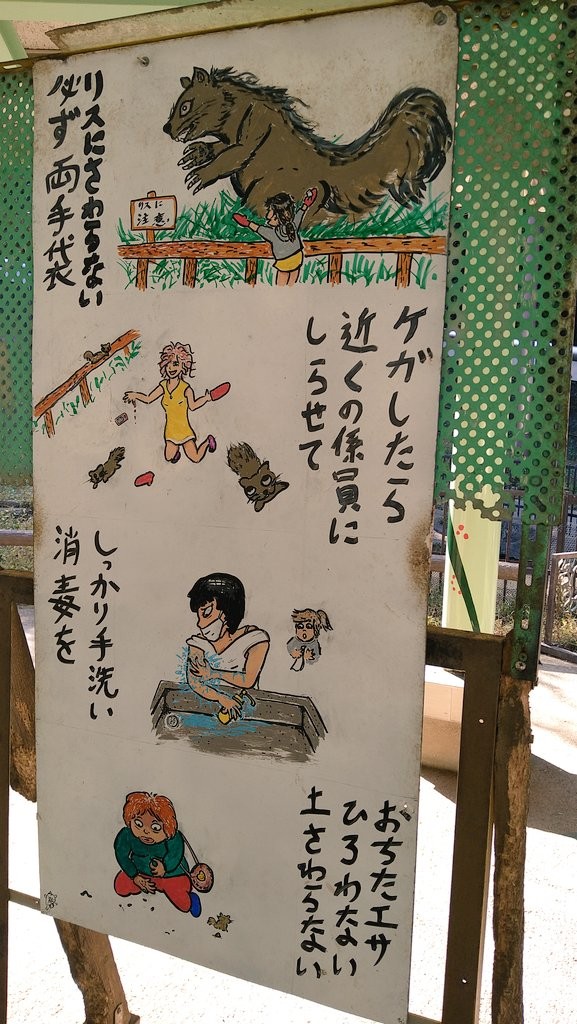 リスにさわらない
必ず両手袋
リスに
注意!
ケガしたら
近くの係員に
しらせて
しっかり手洗い
消毒を
おちたエサ
ひろわない
土さわらない